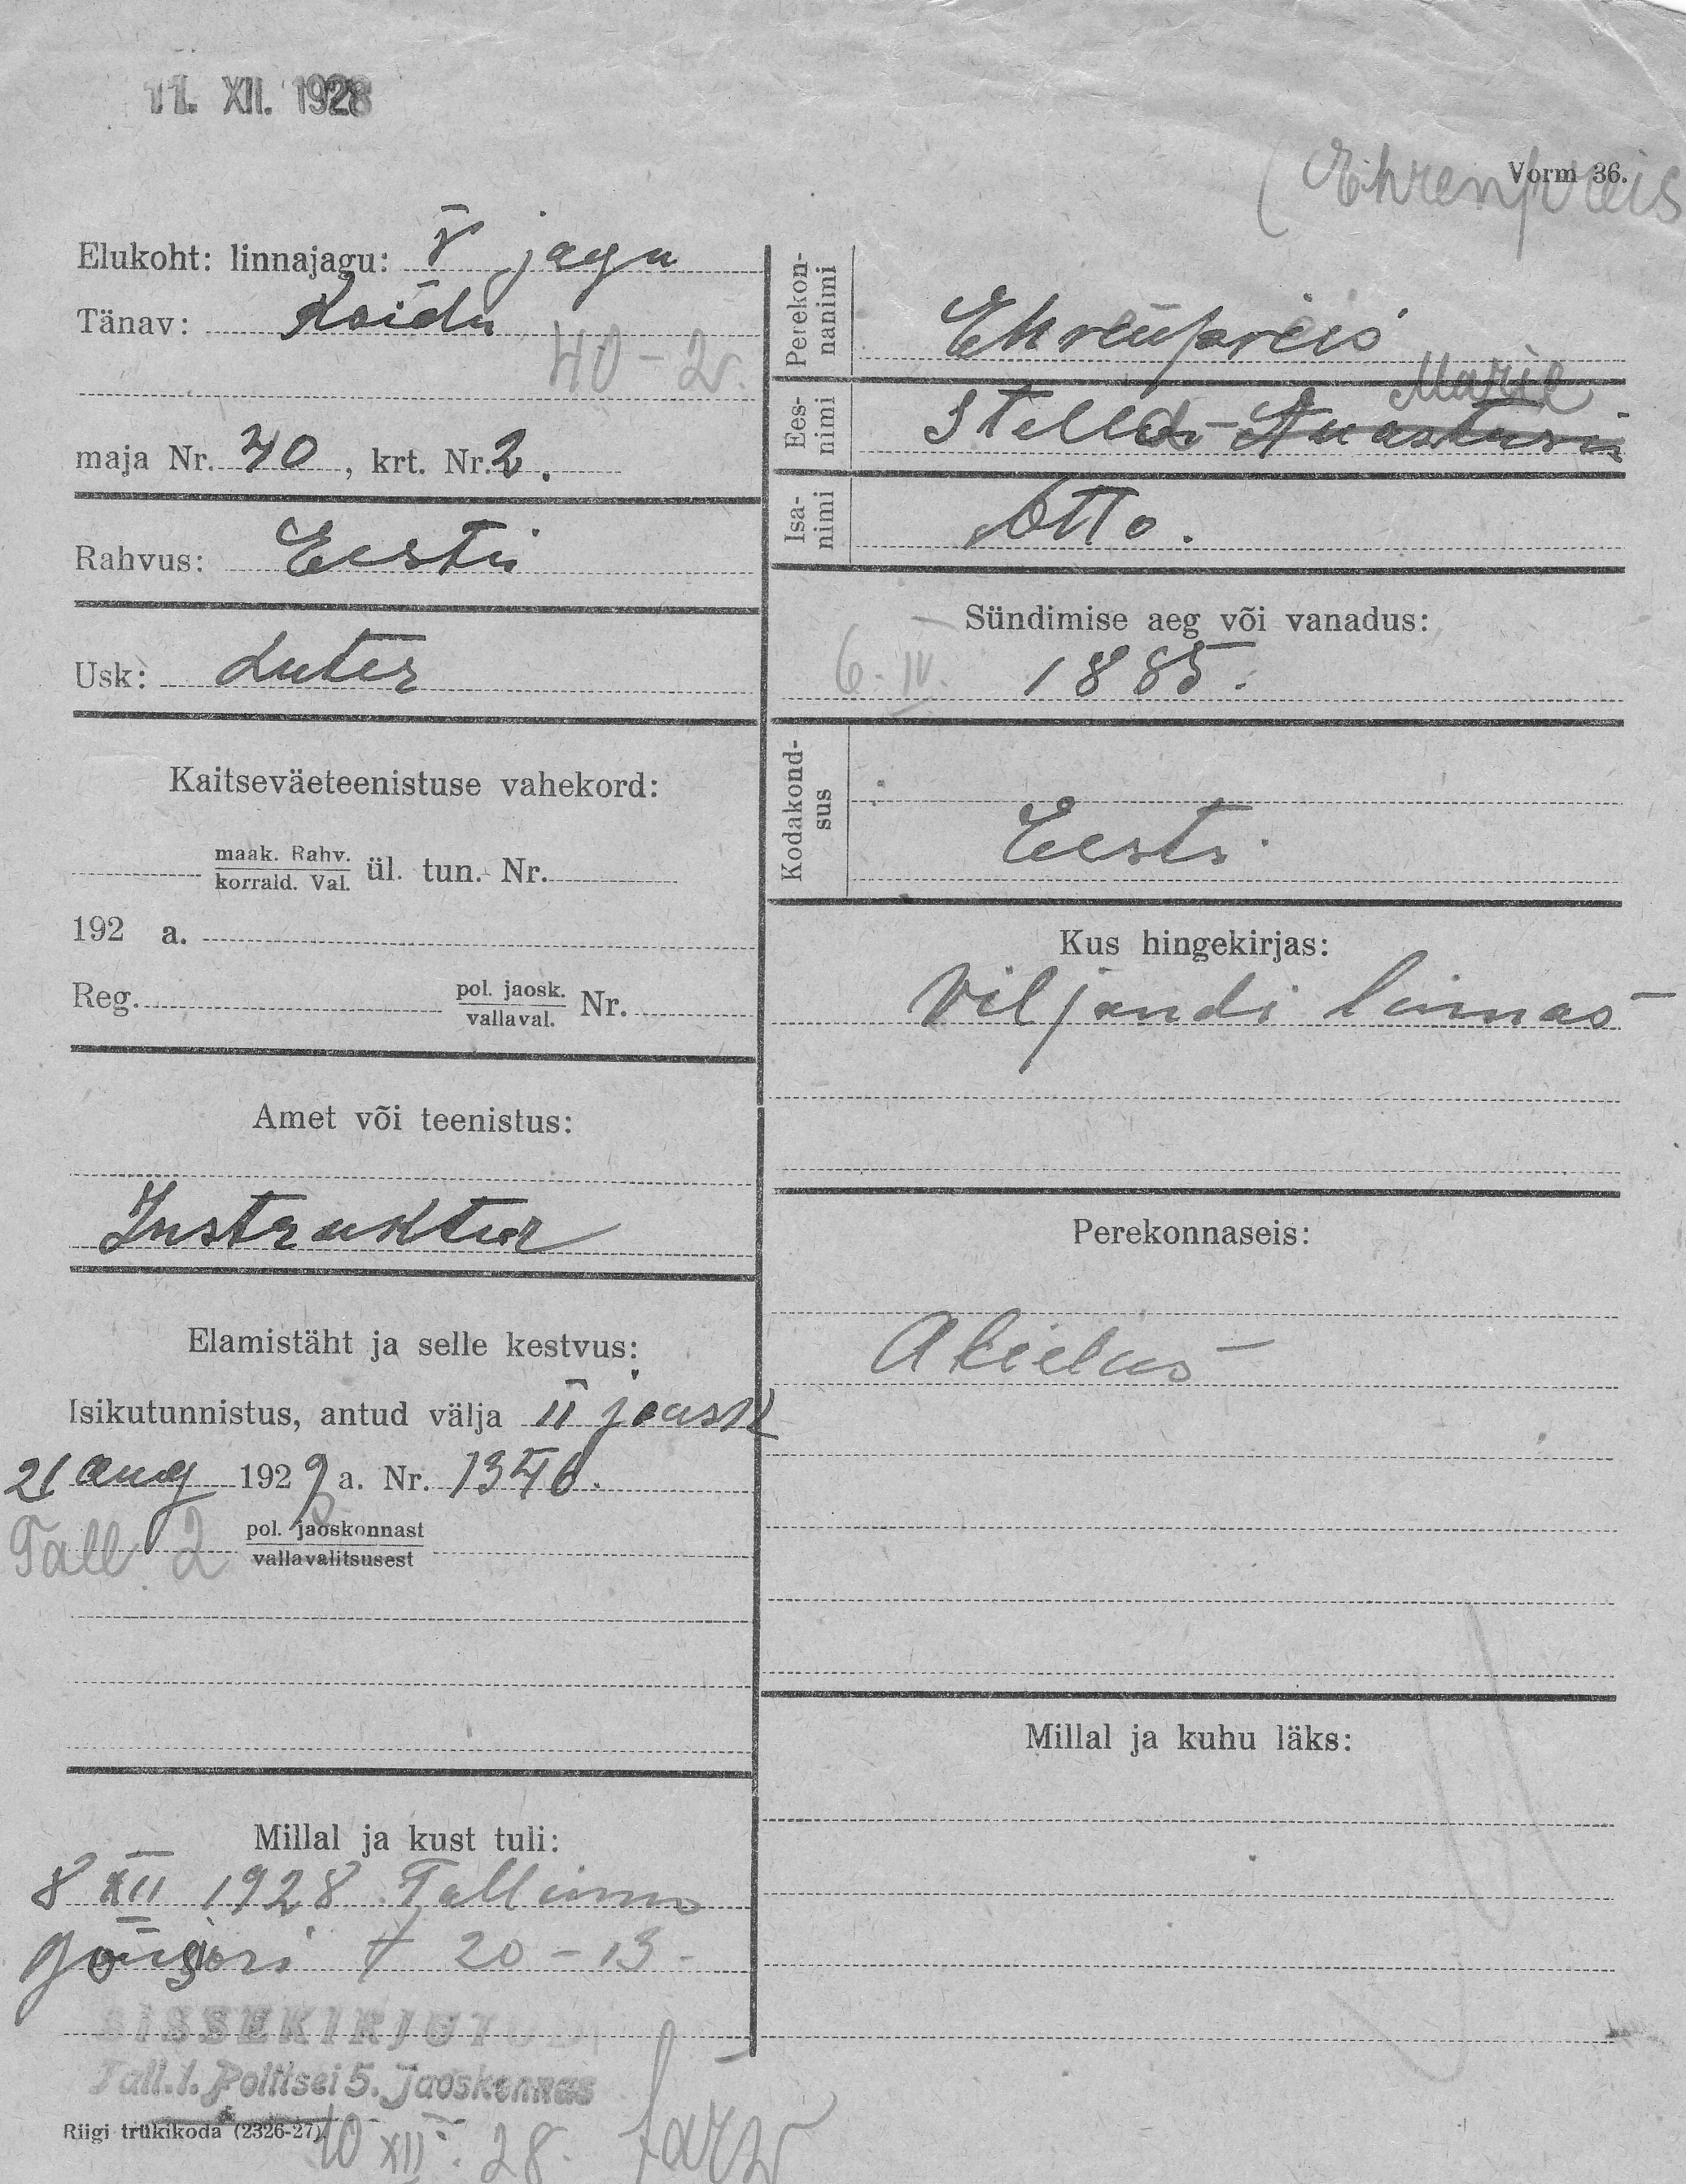 11. XII. 1928
Vorm 36.
(Ehrenpreis
Elukoht: linnajagu: V jagu
Tänav: Koidu
40-2.
maja Nr. 40, krt. Nr. 2.
Rahvus: Eesti
Usk: Luter
Kaitseväeteenistuse vahekord:
maak. Rahv.
korrald. Val. ül. tun. Nr.
192 a.
Reg. pol. jaosk.
vallaval. Nr.
Amet või teenistus:
Instruktor
Elamistäht ja selle kestvus:
Isikutunnistus, antud välja II jaosk
21 aug 1929 a. Nr. 1346.
Tall. 2 pol. jaoskonnast
vallavalitsusest
Millal ja kust tuli:
8 XII 1928 Tallinn
Gonsiori t 20-13-
SISSEKIRJUTUD
Tall.-l. Politsei 5. Jaoskonnas
Riigi trükikoda (2326-27)
10 XII. 28.
Perekon-
nanimi
Ehrenpreis
Ees-
nimi
Marie
Stella-
Isa-
nimi
Otto.
Sündimise aeg või vanadus:
6. IV. 1885.
Kodakond-
sus
Eesti
Kus hingekirjas:
Viljandi linnas
Perekonnaseis:
Abielus
Millal ja kuhu läks: